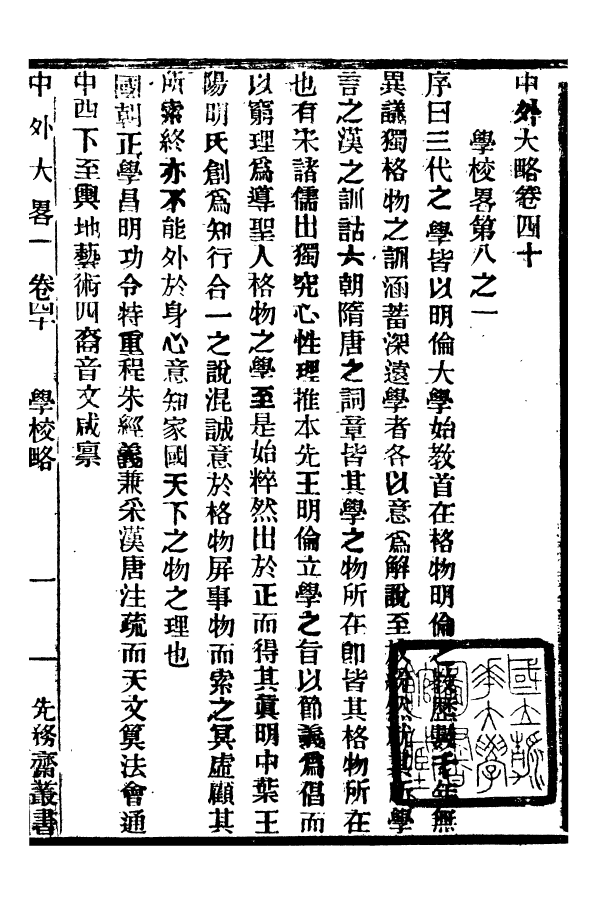 中外大略卷四十
學校畧第八之一
序曰三代之學皆以明倫大學始教首在格物明倫之教歷數千年無
異議獨格物之訓涵蓄深遠學者各以意爲解說至於就其所學
言之漢之訓詁六朝隋唐之詞章皆其學之物所在卽皆其格物所在
也有宋諸儒出獨究心性理推本先王明倫立學之旨以節義爲倡而
以窮理爲導聖人格物之學至是始粹然出於正而得其眞明中葉王
陽明氏創爲知行合一之說混誠意於格物屏事物而索之冥虛顧其
所索終亦不能外於身心意知家國天下之物之理也
國朝正學昌明功令特重程朱經義兼采漢唐注疏而天文算法會通
中西下至輿地藝術四裔音文咸稟
中外大畧一 卷四十 學校略 一 先務齋叢書
國立清華大學圖書館藏